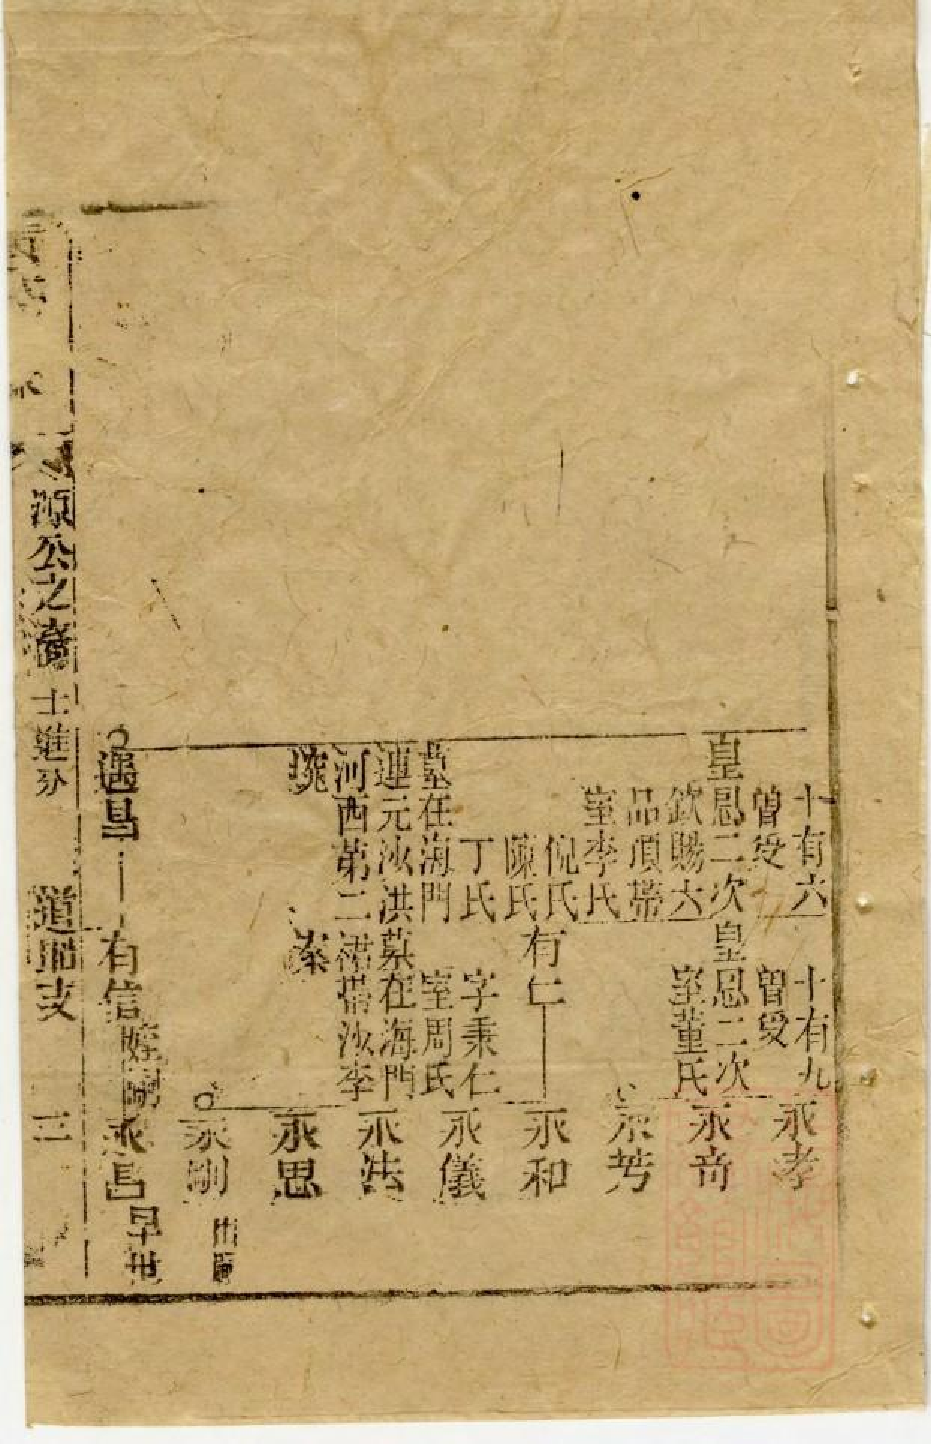 十有六
曾受
皇恩二次
欽賜六
品頂帶
室李氏
倪氏
陳氏
丁氏
墓在海門
連元沙洪
河西第二
埦
遇昌
十有九
曾受
皇恩二次
室董氏
有仁
字秉仁
室周氏
墓在海門
裙帶沙李
有信
永孝
永奇
永芳
永和
永儀
永洪
永思
永剛
永昌
早世
源公之裔
士進分
道
支
三